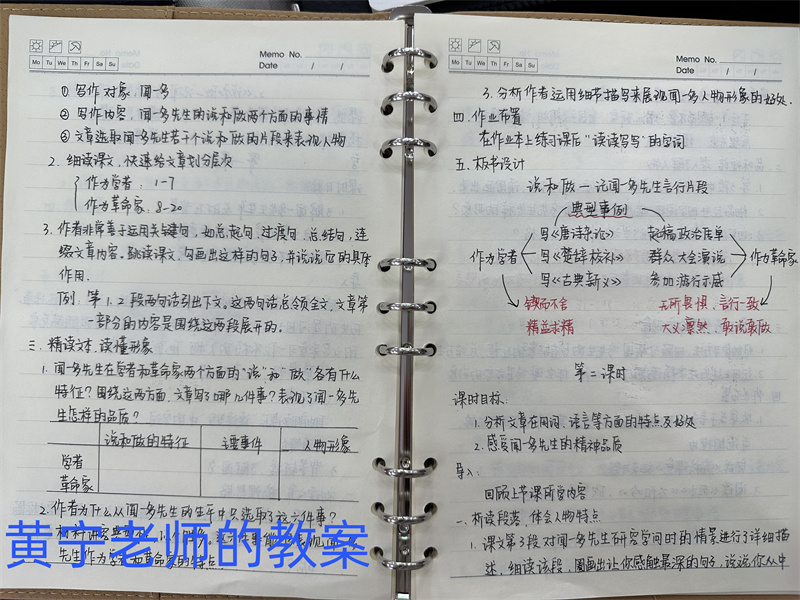 Memo No.
Mo Tu We Th Fr Sa Su
Date / /
① 写作对象:闻一多
② 写作内容:闻一多先生的说和做两个方面的事情
③ 文章选取闻一多先生若干个说和做的片段来表现人物
2. 细读课文,快速给文章划分层次
作为学者:1-7
作为革命家:8-20
3. 作者非常善于运用关键句,如总起句、过渡句、总结句,连
缀文章内容。跳读课文,勾画出这样的句子,并说说它的具体
作用。
例:第1、2段两句话引出下文。这两句话总领全文,文章第
一部分的内容是围绕这两段展开的。
三、精读文本,读懂形象
1. 闻一多先生在学者和革命家两个方面的“说”和“做”各有什么
特征?围绕这两方面,文章写了哪几件事?表现了闻一多先
生怎样的品质?
说和做的特征 主要事件 人物形象
学者
革命家
2. 作者为什么从闻一多先生的生平中只选取了这六件事?
先生作为学者和革命家的特点
黄宁老师的教案
Memo No.
Mo Tu We Th Fr Sa Su
Date / /
3. 分析作者运用细节描写来展现闻一多人物形象的好处
四、作业布置
在作业本上练习课后“读读写写”的字词
五、板书设计
说和做—记闻一多先生言行片段
典型事例
作为学者
写《唐诗杂论》 起稿政治传单
写《楚辞校补》 群众大会演说
写《古典新义》 参加游行示威
作为革命家
锲而不舍 无所畏惧,言行一致
精益求精 大义凛然,敢说敢做
第二课时
课时目标:
1. 分析文章在用词、语言等方面的特点及好处
2. 感受闻一多先生的精神品质
导入:
回顾上节课所学内容
一、析读段落,体会人物特点
1. 课文第3段对闻一多先生研究学问时的情景进行了详细描
述,细读该段,圈画出让你感触最深的句子,说说你从中